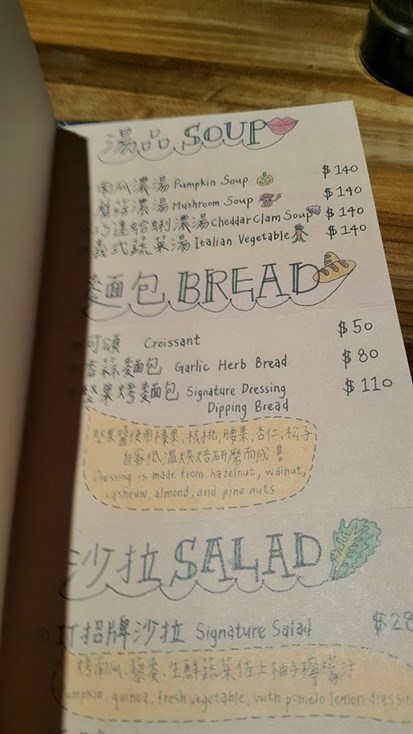 湯品 SOUP
南瓜濃湯 Pumpkin Soup $140
蘑菇濃湯 Mushroom Soup $140
巧達蛤蜊濃湯 Cheddar Clam Soup $140
義式蔬菜湯 Italian Vegetable $140
麵包 BREAD
可頌 Croissant $50
香蒜麵包 Garlic Herb Bread $80
堅果烤麵包 Signature Dressing $110
Dipping Bread
堅果醬使用榛果,核桃,腰果,杏仁,松子
自家低溫烘焙研磨而成!
Dressing is made from hazelnut, walnut,
cashew, almond, and pine nuts
沙拉 SALAD
IT招牌沙拉 Signature Salad $28
烤南瓜、藜麥、生鮮蔬菜佐上柚子檸檬汁
Pumpkin, quinoa, fresh vegetable, with pomelo lemon dressin